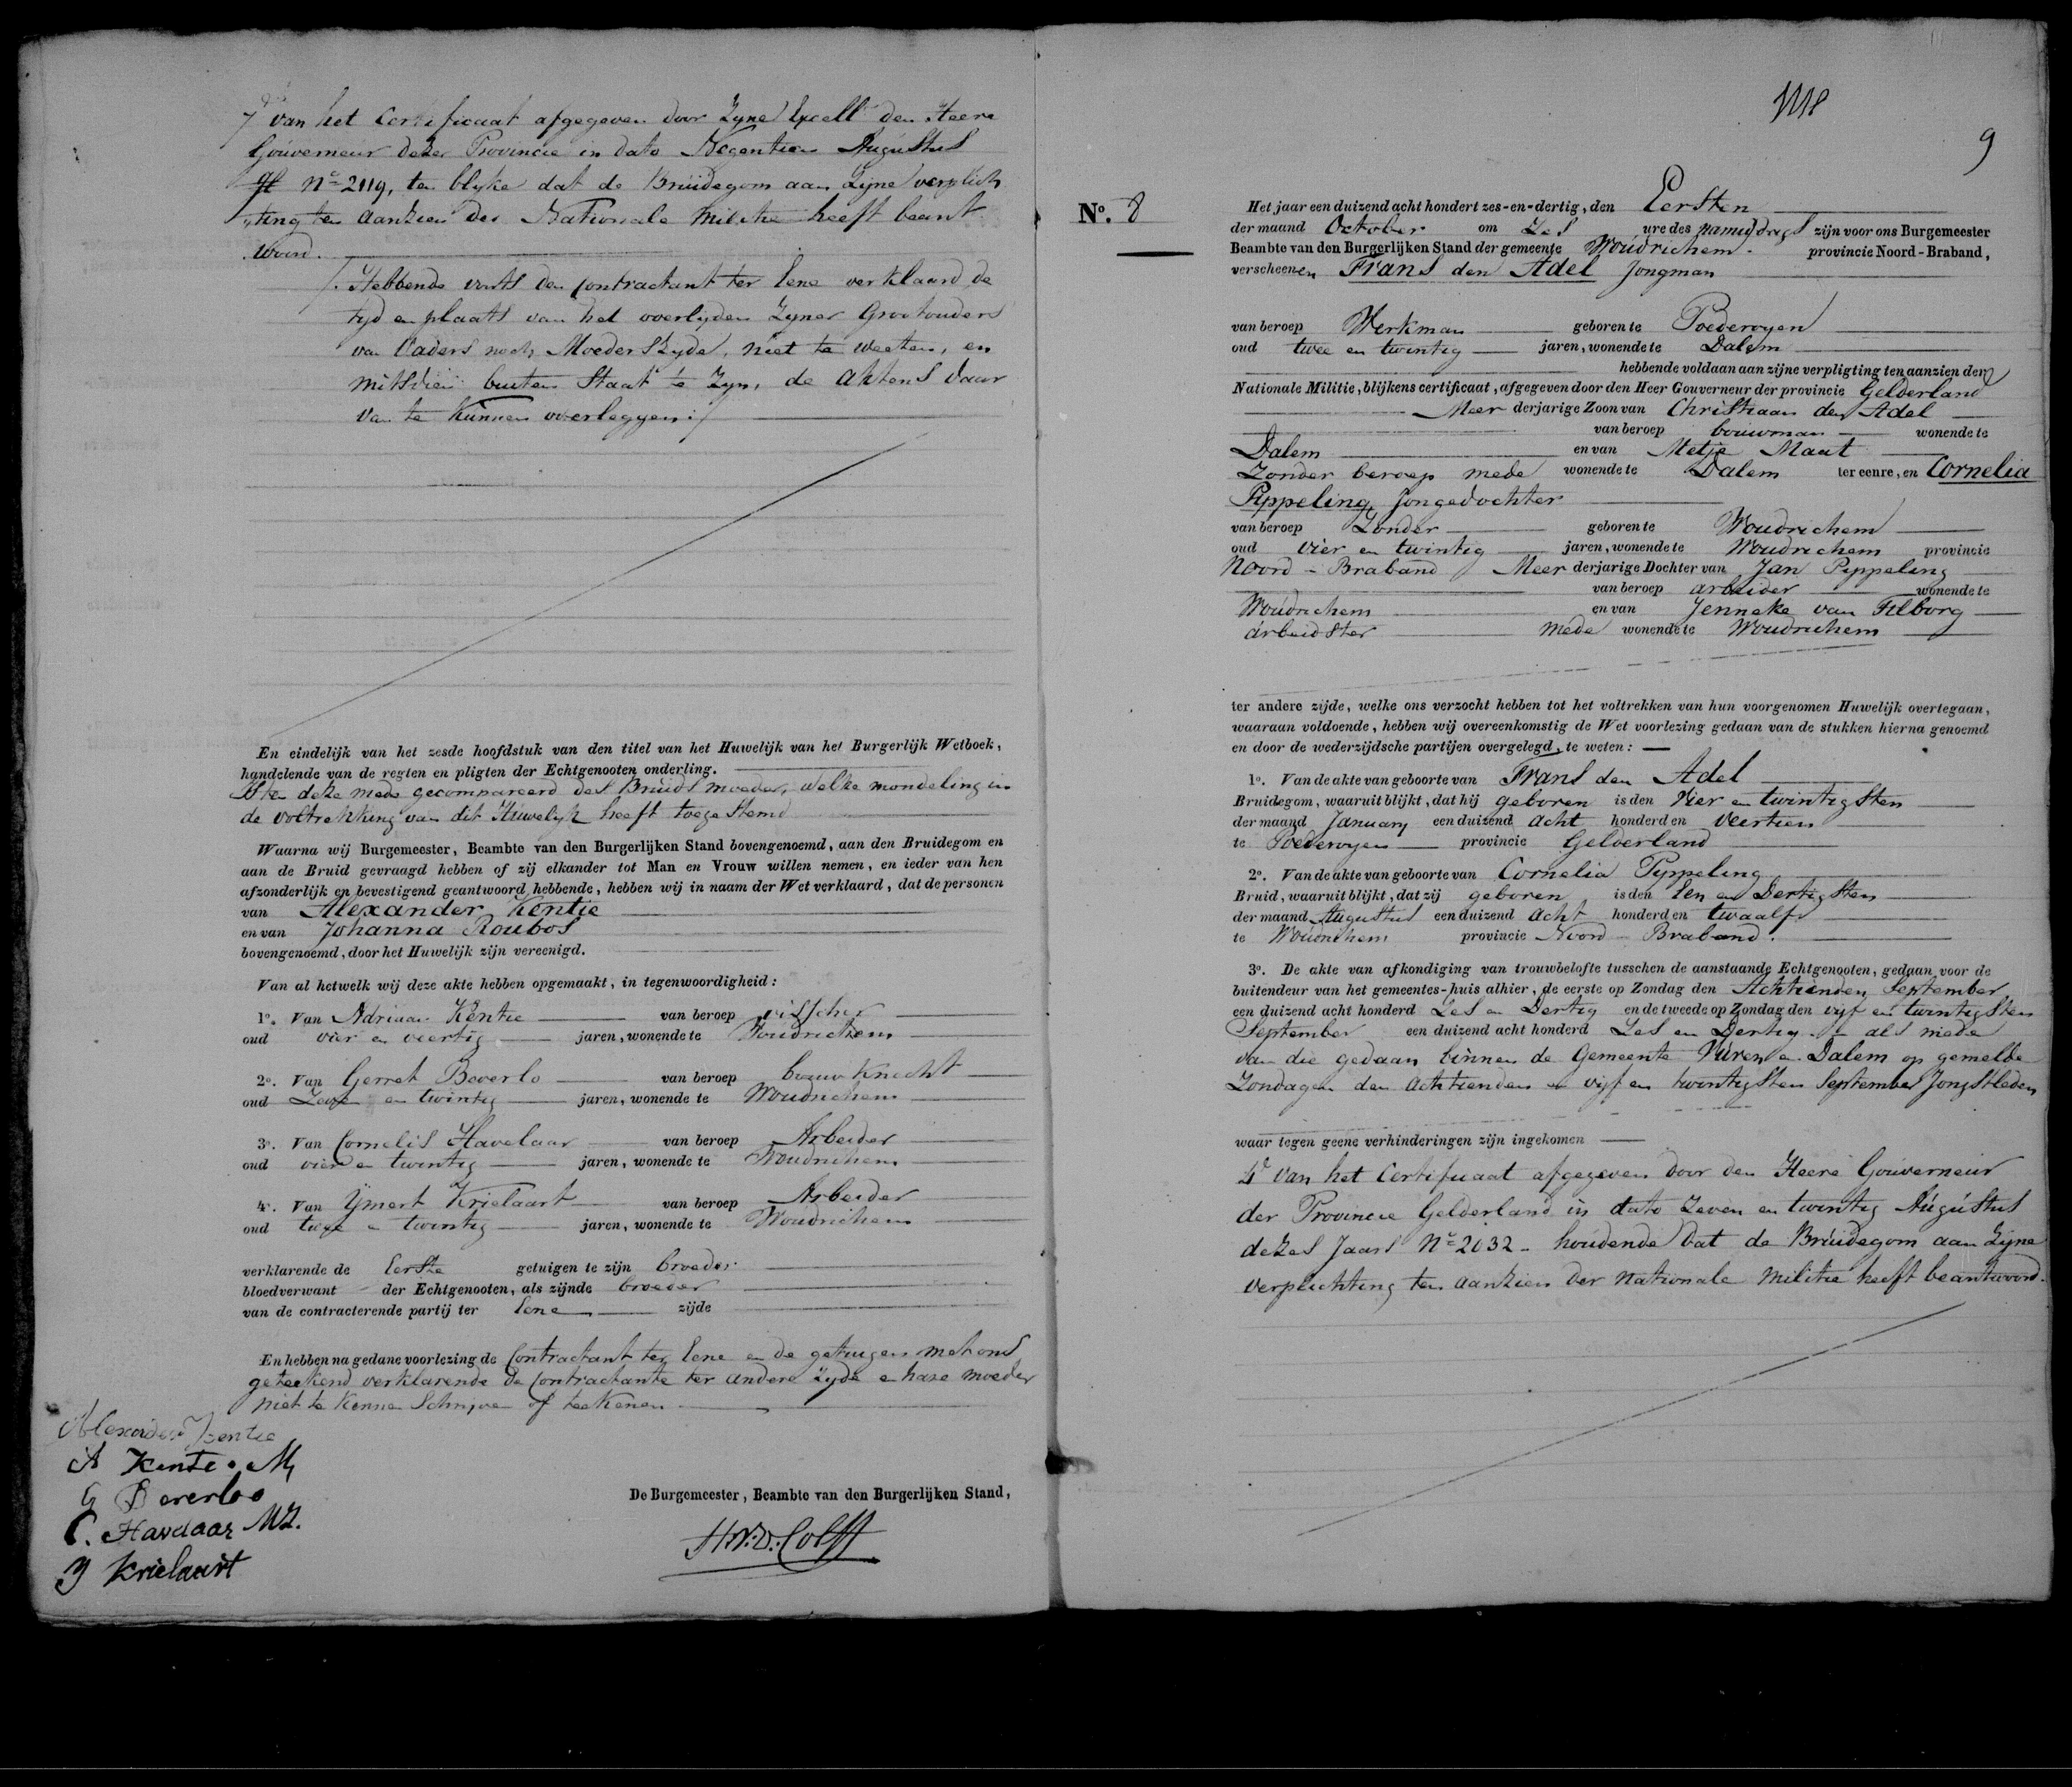 7e van het Certificaat afgegeven door Zyne Excell den Heere
Gouverneur dezer Provincie in dato Negentien Augustus
No 2119, ten blyke dat de Bruidegom aan Zyne verplich
ting ten aanzien der Nationale Militie heeft beant
woord.
Hebbende voorts den Contractant ter Eene verklaard de
tyd en plaats van het overlyden Zyner Grootouders
van Vaders noch Moeders Zyde, niet te weeten, en
mitsdien buiten Staat te Zyn, de aktens daar
van te kunnen overleggen
En eindelijk van het zesde hoofdstuk van den titel van het Huwelijk van het Burgerlijk Wetboek,
handelende van de regten en pligten der Echtgenooten onderling.
ten deze mede gecompareerd des Bruids moeder, welke mondeling in
de voltrekking van dit Huwelyk heeft toegestemd
Waarna wij Burgemeester, Beambte van den Burgerlijken Stand bovengenoemd, aan den Bruidegom en
aan de Bruid gevraagd hebben of zij elkander tot Man en Vrouw willen nemen, en ieder van hen
afzonderlijk en bevestigend geantwoord hebbende, hebben wij in naam der Wet verklaard, dat de personen
van Alexander Kentie
en van Johanna Roubos
bovengenoemd, door het Huwelijk zijn vereenigd.
Van al hetwelk wij deze akte hebben opgemaakt, in tegenwoordigheid:
1o. Van Adriaan Kentie van beroep visscher
oud vier en veertig jaren, wonende te Woudrichem
2o. Van Gerret Beverlo van beroep bouwknecht
oud Zeve en twintig jaren, wonende te Woudrichem
3o. Van Cornelis Havelaar van beroep Arbeider
oud vier en twintig jaren, wonende te Woudrichem
4o. Van Ijmert Krielaart van beroep Arbeider
oud twee en twintig jaren, wonende te Woudrichem
verklarende de Eerste getuigen te zijn broeder
bloedverwant der Echtgenooten, als zijnde broeder
van de contracterende partij ter Eene zijde
En hebben na gedane voorlezing de Contractant ter Eene en de getuigen met ons
geteekend verklarende de Contractante ter andere Zyde en hare moeder
niet te kennen Schryven of teekenen
Alexander Kentie
A Kentie M
G Beverloo
C. Havelaar MZ.
Y Krielaart
De Burgemeester, Beambte van den Burgerlijken Stand,
9
No. 8
Het jaar een duizend acht hondert zes-en-dertig, den Eersten
der maand October om Zes ure des namiddags zijn voor ons Burgemeester
Beambte van den Burgerlijken Stand der gemeente Woudrichem provincie Noord-Braband,
verscheenen Frans den Adel Jongman
van beroep Werkman geboren te Poederoyen
oud twee en twintig jaren, wonende te Dalem
hebbende voldaan aan zijne verpligting ten aanzien der
Nationale Militie, blijkens certificaat, afgegeven door den Heer Gouverneur der provincie Gelderland
Meer derjarige Zoon van Christiaan den Adel
van beroep bouwman wonende te
Dalem en van Metje Maat
Zonder beroep mede wonende te Dalem ter eenre, en Cornelia
Pippeling Jongedochter
van beroep Zonder geboren te Woudrichem
oud vier en twintig jaren, wonende te Woudrichem provincie
Noord - Braband Meer derjarige Dochter van Jan Pippeling
van beroep arbeider wonende te
Woudrichem en van Jenneke van Tilborg
arbeidster mede wonende te Woudrichem
ter andere zijde, welke ons verzocht hebben tot het voltrekken van hun voorgenomen Huwelijk overtegaan,
waaraan voldoende, hebben wij overeenkomstig de Wet voorlezing gedaan van de stukken hierna genoemd
en door de wederzijdsche partijen overgelegd, te weten:
1o. Van de akte van geboorte van Frans den Adel
Bruidegom, waaruit blijkt, dat hij geboren is den Vier en twintigsten
der maand January een duizend acht honderd en Veertien
te Poederoyen provincie Gelderland
2o. Van de akte van geboorte van Cornelia Pippeling
Bruid, waaruit blijkt, dat zij geboren is den Een en Dertigsten
der maand Augustus een duizend acht honderd en twaalf
te Woudrichem provincie Noord Braband.
3o. De akte van afkondiging van trouwbelofte tusschen de aanstaande Echtgenooten, gedaan voor de
buitendeur van het gemeentes-huis alhier, de eerste op Zondag den Achtienden September
een duizend acht honderd Zes en Dertig en de tweede op Zondag den vijf en twintigsten
September een duizend acht honderd Zes en Dertig - als mede
van die gedaan binnen de Gemeente Vuren en Dalem op gemelde
Zondagen den achtienden en vijf en twintigsten September Jongstleden
waar tegen geene verhinderingen zijn ingekomen
4e van het Certificaat afgegeven door den Heere Gouverneur
der Provincie Gelderland in dato Zeven en twintig Augustus
dezes Jaars No 2032 - houdende dat de Bruidegom aan Zyne
verplichting ten aanzien der Nationale Militie heeft beantwoord.